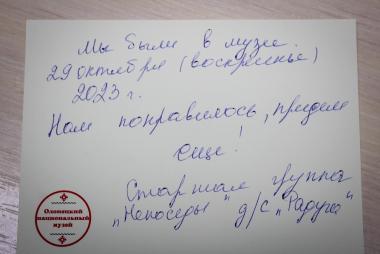 Мы были в музее.
29 октября (воскринье)
2023 г.
Нам понравилось, придем
еще!
Старшая группа
"Непоседы" д/с "Радуга"
Олонецкий
национальный
музей